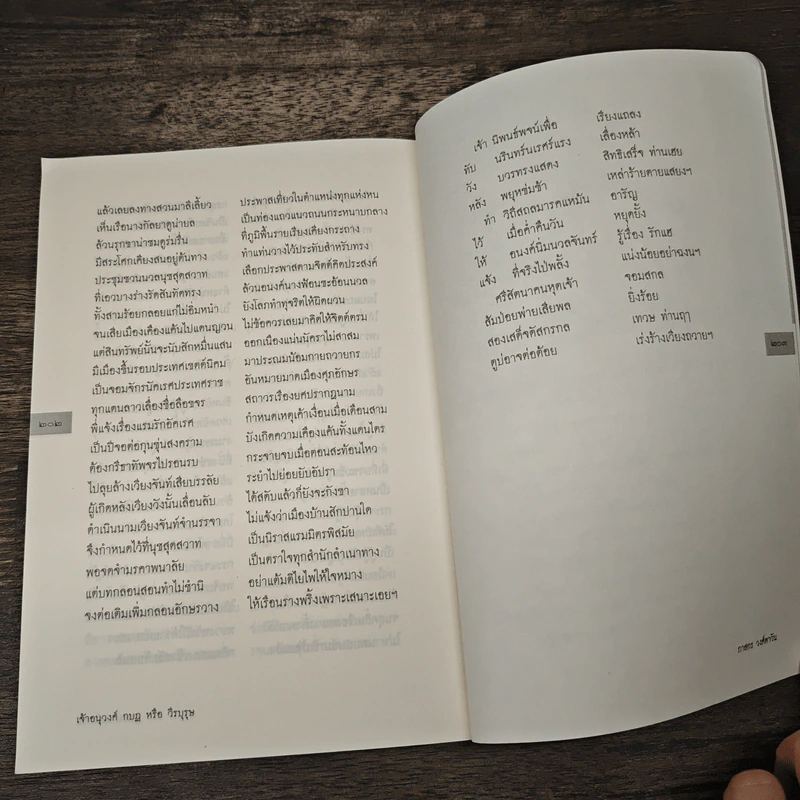 แล้วเลยลงทางสวนมาลีเลี้ยว ประพาสเที่ยวในตำแหน่งทุกแห่งหน
เห็นเรือนางกัลยาดูน่ายล เป็นท่องแถวแนวถนนกระหนาบกลาง
ล้วนรุกขาน่าชมดูร่มรื่น ที่ภูมิพื้นรายเรียงเคียงกระถาง
มีสระโศกเคียงสนอยู่ต้นทาง ทำแท่นวางไว้ประทับสำหรับทรง
ประชุมชวนนวลนุชสุดสวาท เลือกประพาสตามจิตต์คิดประสงค์
ที่เอวบางร่างรัดสันทัดทรง ล้วนอนงค์นางฟ้อนชะอ้อนนวล
ทั้งสามร้อยกลอยแก่ไม่อิ่มหนำ ยังโลภทำทุจริตให้ผิดผวน
จนเสียเมืองเคืองแค้นไปแดนญวน ไม่ข้อควรเลยมาคิดให้จิตต์ตรม
แต่สินทรัพย์นั้นจะนับสักหมื่นแสน ออกเนืองแน่นนัคราไม่สาสม
มีเมืองขึ้นรอบประเทศเขตต์นิคม มาประณมน้อมกายถวายกร
เป็นจอมจักรนัคเรศประเทศราช อันหมายมาดเมืองศุภอักษร
ทุกแดนลาวเลื่องชื่อลือขจร สถาวรเรืองยศปรากฏนาม
พี่แจ้งเรื่องแรมรักอัคเรศ กำหนดเหตุเค้าเงื่อนเมื่อเดือนสาม
เป็นปีจอต่อกุนขุ่นสงคราม บังเกิดความเคืองแค้นทั้งแดนไตร
ต้องกรีธาทัพจรไปรอนรบ กระจายจบเมื่อตอนสะท้อนไหว
ไปลุยล้างเวียงจันท์เสียบรรลัย ระยำไปย่อยยับอัปรา
ผู้เกิดหลังเวียงวังนั้นเลื่อนลับ ได้สดับแล้วก็ยังจะกังขา
ดำเนินนามเวียงจันท์จำนรรจา ไม่แจ้งว่าเมืองบ้านสักปานใด
จึงกำหนดไว้ที่นุชสุดสวาท เป็นนิราสแรมมิตรพิสมัย
พอจดจำมรคาพนาลัย เป็นตราใจทุกสำนักลำเนาทาง
แต่บทกลอนสอนทำไม่ชำนิ อย่าแต้มติไยไพให้ใจหมาง
จงต่อเติมเพิ่มกลอนอักษรวาง ให้เรือนรางพริ้งเพราะเสนาะเอยฯ
๒๐๒
เจ้าอนุวงศ์ กบฏ หรือ วีรบุรุษ
เจ้า นิพนธ์พจน์เพื่อ เรียงแถลง
ทับ นรินทร์นเรศร์แรง เลื่องหล้า
วัง บวรทรงแสดง สิทธิเสร็จ ท่านเฮย
หลัง พยุหซ่มซ้ำ เหล่าร้ายตายแสยงฯ
ทำ วิถีสถลมารคแหมัน อารัญ
ไว้ เมื่อค่ำคืนวัน หยุดยั้ง
ให้ อนงค์นิ่มนวลจันทร์ รู้เรื่อง รักแฮ
แจ้ง ที่จริงไป่พลั้ง แน่งน้อยอย่าฉงนฯ
ศรีสัตนาคนหุตเจ้า จอมสกล
ลัมป่อยพ่ายเสียพล ยิ่งร้อย
สองเสด็จดัสกรกล เทวษ ท่านฤๅ
ดูปอาจต่อต้อย เร่งร้างเวียงถวายฯ
๒๐๓
ภาสกร วงศ์ตาวัน